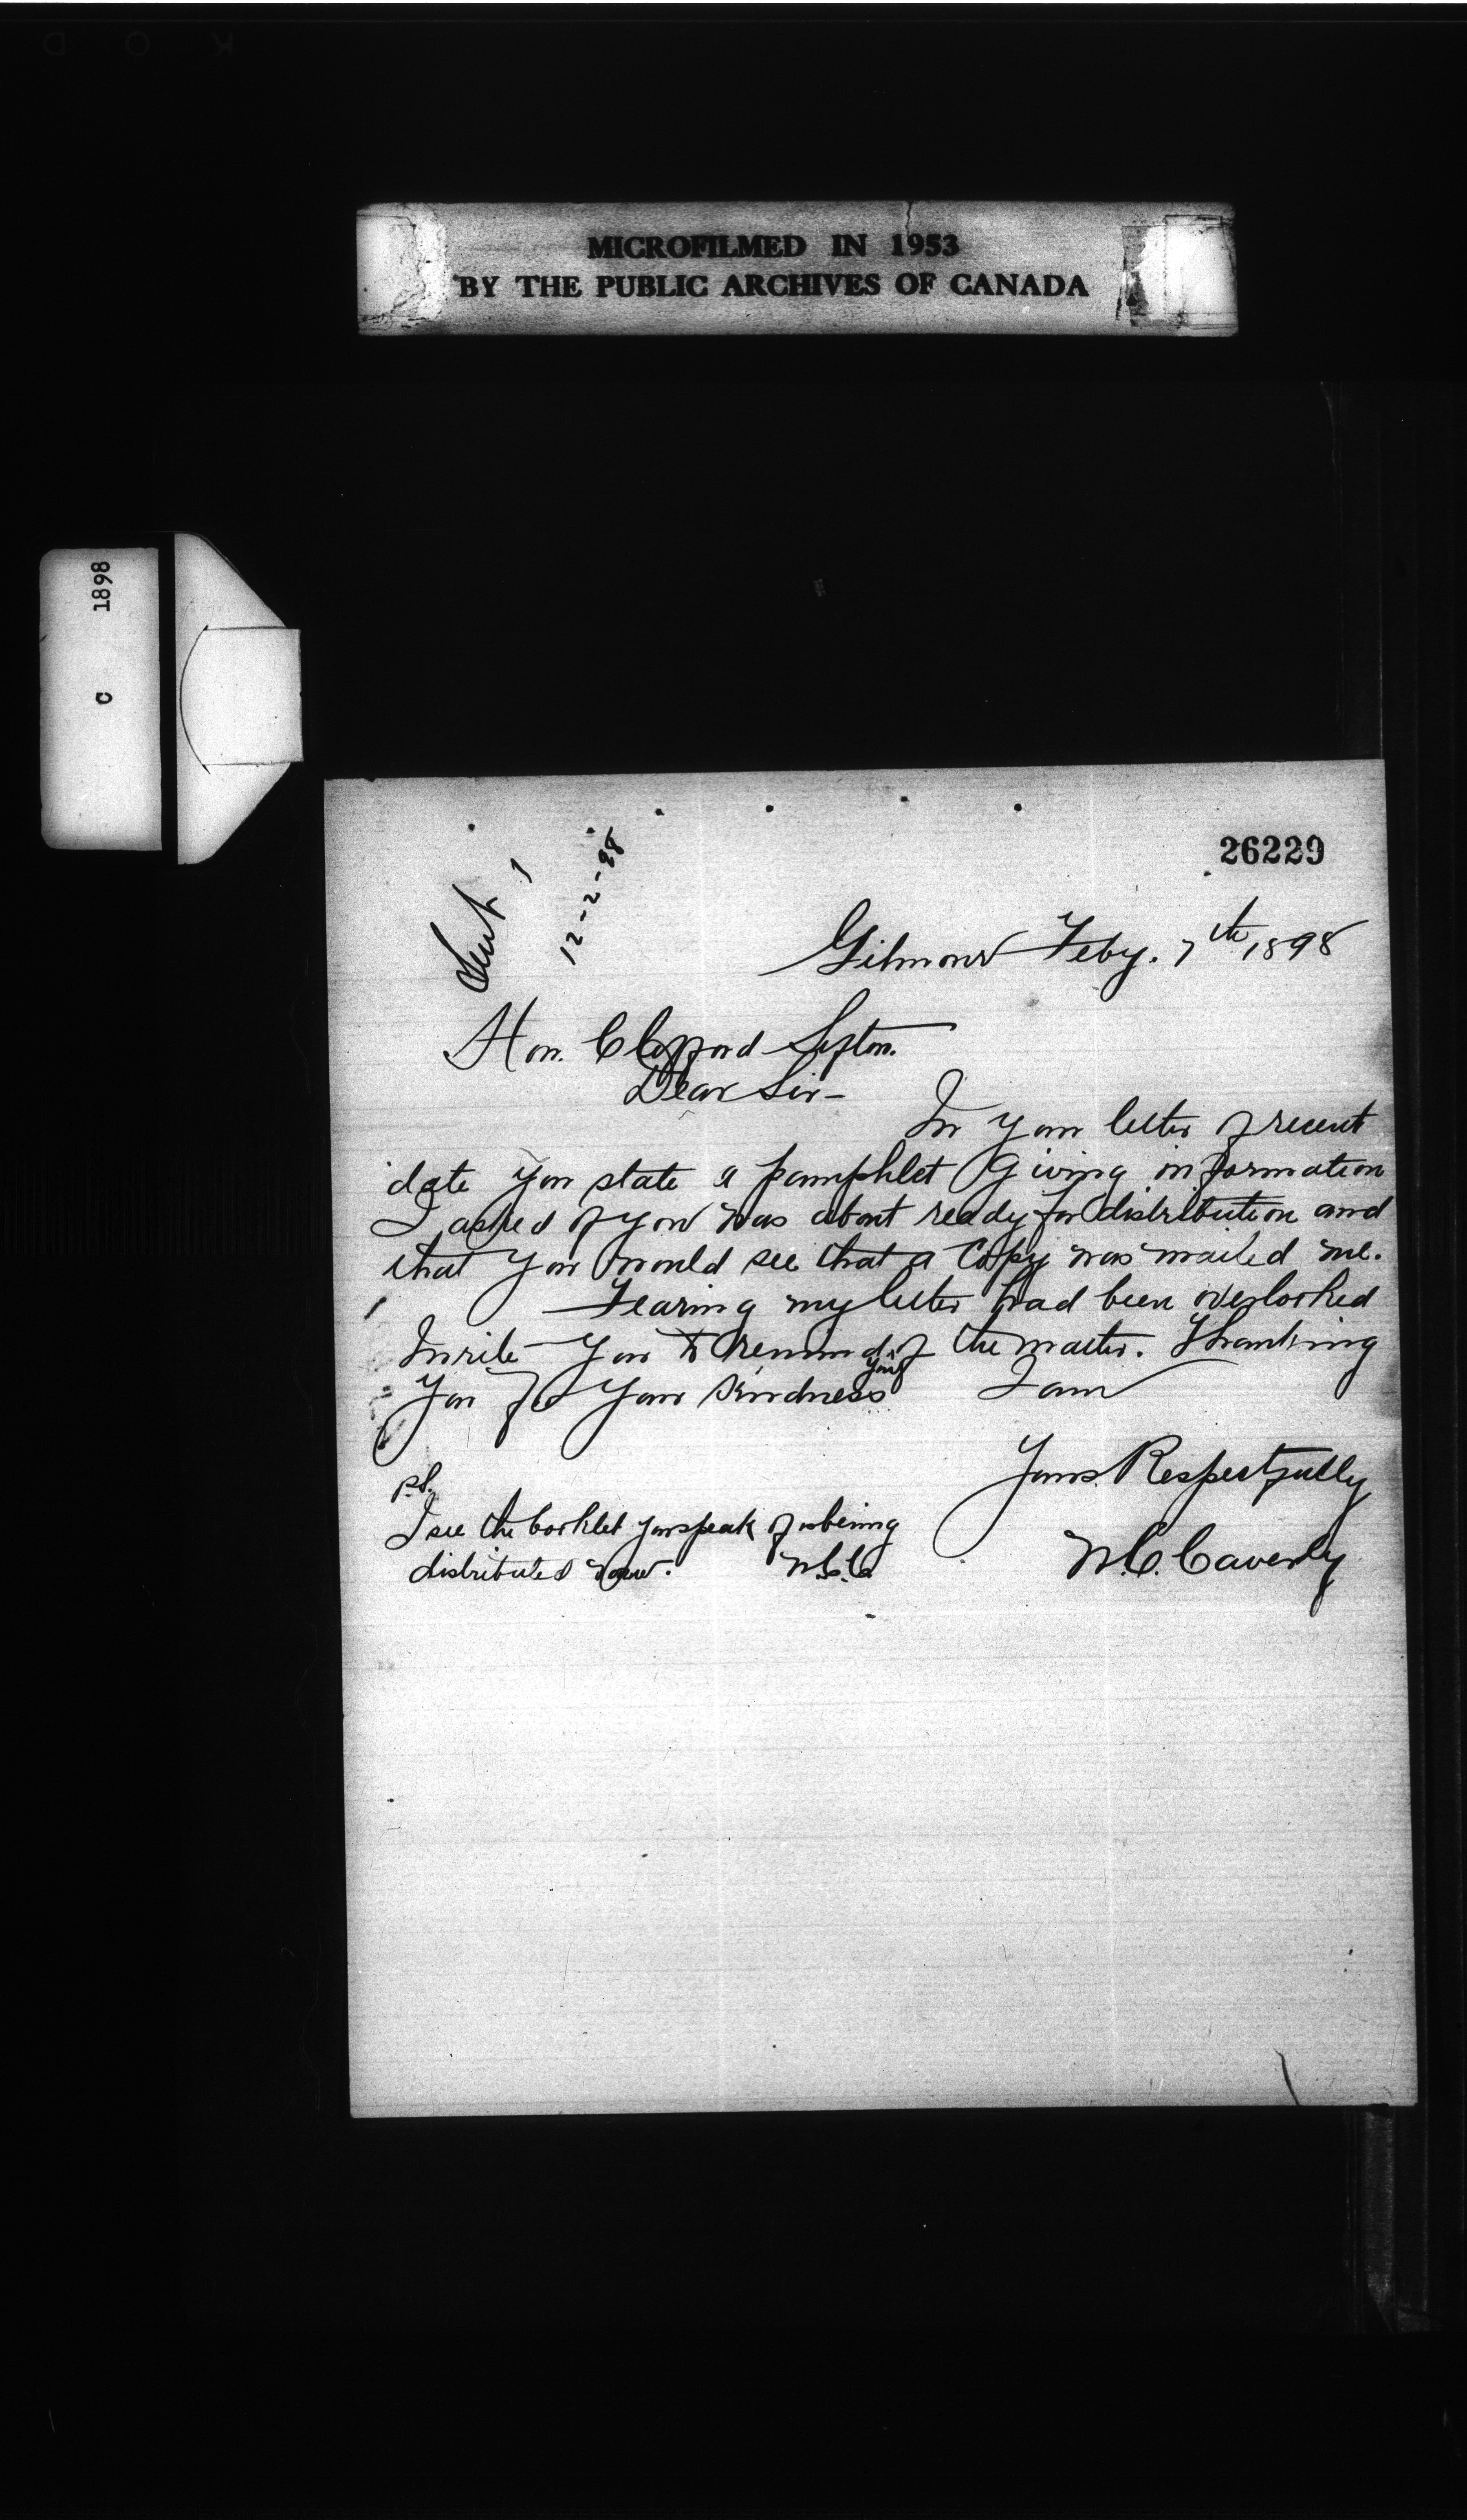 MICROFILMED IN 1953
BY THE PUBLIC ARCHIVES OF CANADA
1898
C
26229
Sent
12-2-98
Gilmour Feby. 7th 1898
Hon. Clifford Sifton.
Dear Sir-
In your letter of recent
date you state a pamphlet giving information
I asked of you was about ready for distribution and
that you would see that a copy was mailed me.
Fearing my letter had been overlooked
I write you to remind you of the matter. Thanking
you for your kindness I am
Yours. Respectfully
W.C. Caverly
P.S.
I see the booklet you speak of is being
distributed now. W.C.C.